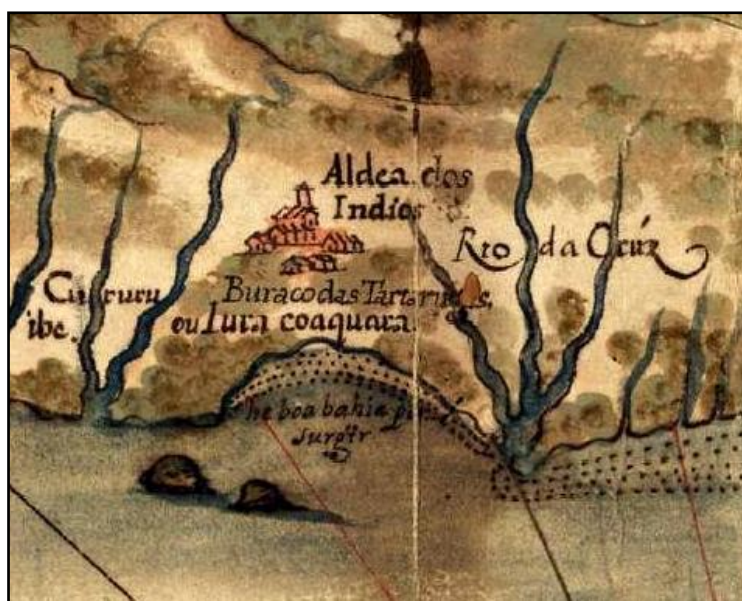 Aldea dos
Indios
Rio da Crúz
Cururu
ibe.
Buraco das Tartarugas,
ou Iura coaquara.
he boa bahia
surgir